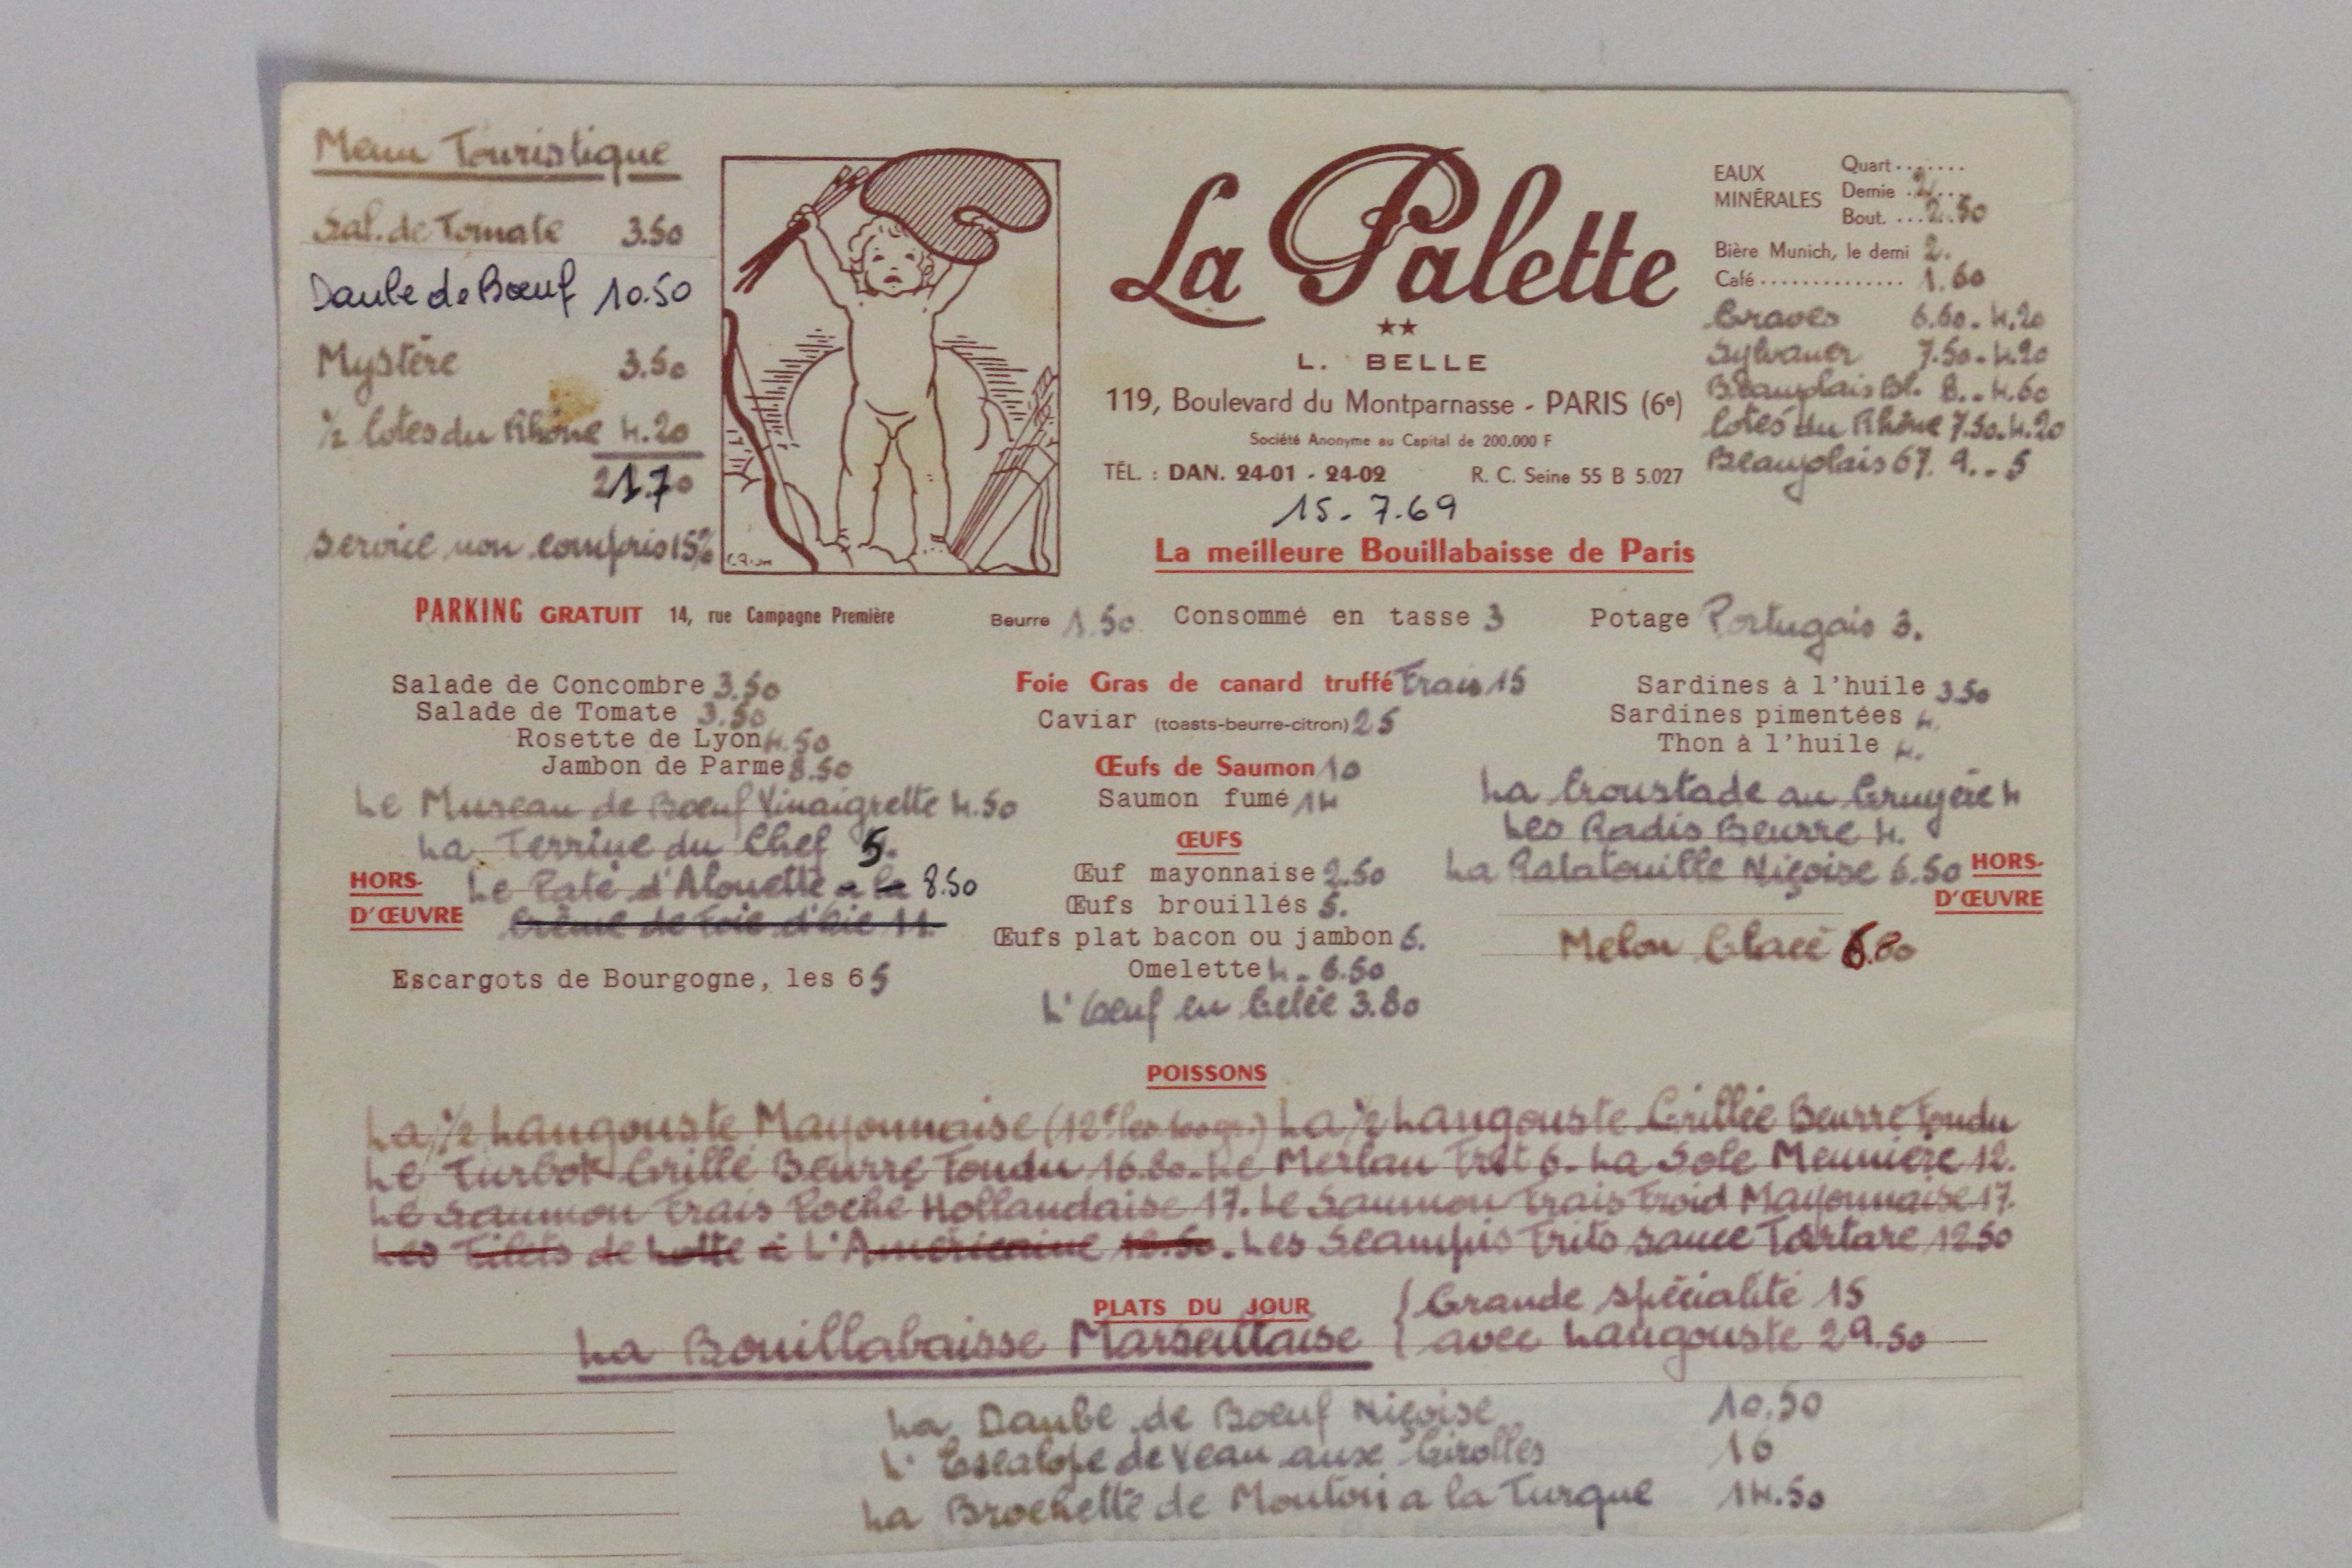 Menu Touristique
Sal. de Tomate 3.50
Daube de Bœuf 10.50
Mystère 3.50
½ Cotes du Rhône 4.20
21.70
Service non compris 15%
La Palette
★★
L. BELLE
119, Boulevard du Montparnasse - PARIS (6e)
Société Anonyme au Capital de 200.000 F
TÉL. : DAN. 24-01 - 24-02 R. C. Seine 55 B 5.027
15.7.69
La meilleure Bouillabaisse de Paris
EAUX MINÉRALES
Quart.......
Demie .2....
Bout. ...2.50
Bière Munich, le demi 2.
Café.............. 1.60
Graves 6.60 - 4.20
Sylvaner 7.50 - 4.20
Beaujolais Bl. 8. - 4.60
Cotes du Rhône 7.50 - 4.20
Beaujolais 67. 9. - 5
PARKING GRATUIT 14, rue Campagne Première
Beurre 1.50 Consommé en tasse 3 Potage Portugais 3.
Salade de Concombre 3.50
Salade de Tomate 3.50
Rosette de Lyon 4.50
Jambon de Parme 8.50
Le Museau de Bœuf Vinaigrette 4.50
La Terrine du Chef 5.
HORS-D'ŒUVRE
Le Paté d'Alouette a la 8.50
Crème de Foie d'Oie 11.
Escargots de Bourgogne, les 6 5
Foie Gras de canard truffé Frais 15
Caviar (toasts-beurre-citron) 25
Œufs de Saumon 10
Saumon fumé 14
ŒUFS
Œuf mayonnaise 2.50
Œufs brouillés 5.
Œufs plat bacon ou jambon 6.
Omelette 4. - 6.50
L'Oeuf en Gelée 3.80
Sardines à l'huile 3.50
Sardines pimentées 4.
Thon à l'huile 4.
La Croustade au Gruyère 4
Les Radis Beurre 4.
La Ratatouille Niçoise 6.50
HORS-D'ŒUVRE
Melon Glacé 6.80
POISSONS
La ½ Langouste Mayonnaise (12F les 100 gr.) La ½ Langouste Grillée Beurre Fondu
Le Turbot Grillé Beurre Fondu 16.80 - Le Merlan Frit 6 - La Sole Meunière 12.
Le Saumon Frais Poché Hollandaise 17. Le Saumon Frais Froid Mayonnaise 17.
Les Filets de Lotte à L'Américaine 12.50. Les Scampis Frits sauce Tartare 12.50
PLATS DU JOUR
La Bouillabaisse Marseillaise { Grande spécialité 15
{ avec Langouste 29.50
La Daube de Bœuf Niçoise 10.50
L'Escalope de Veau aux Girolles 16
La Brochette de Mouton a la Turque 14.50